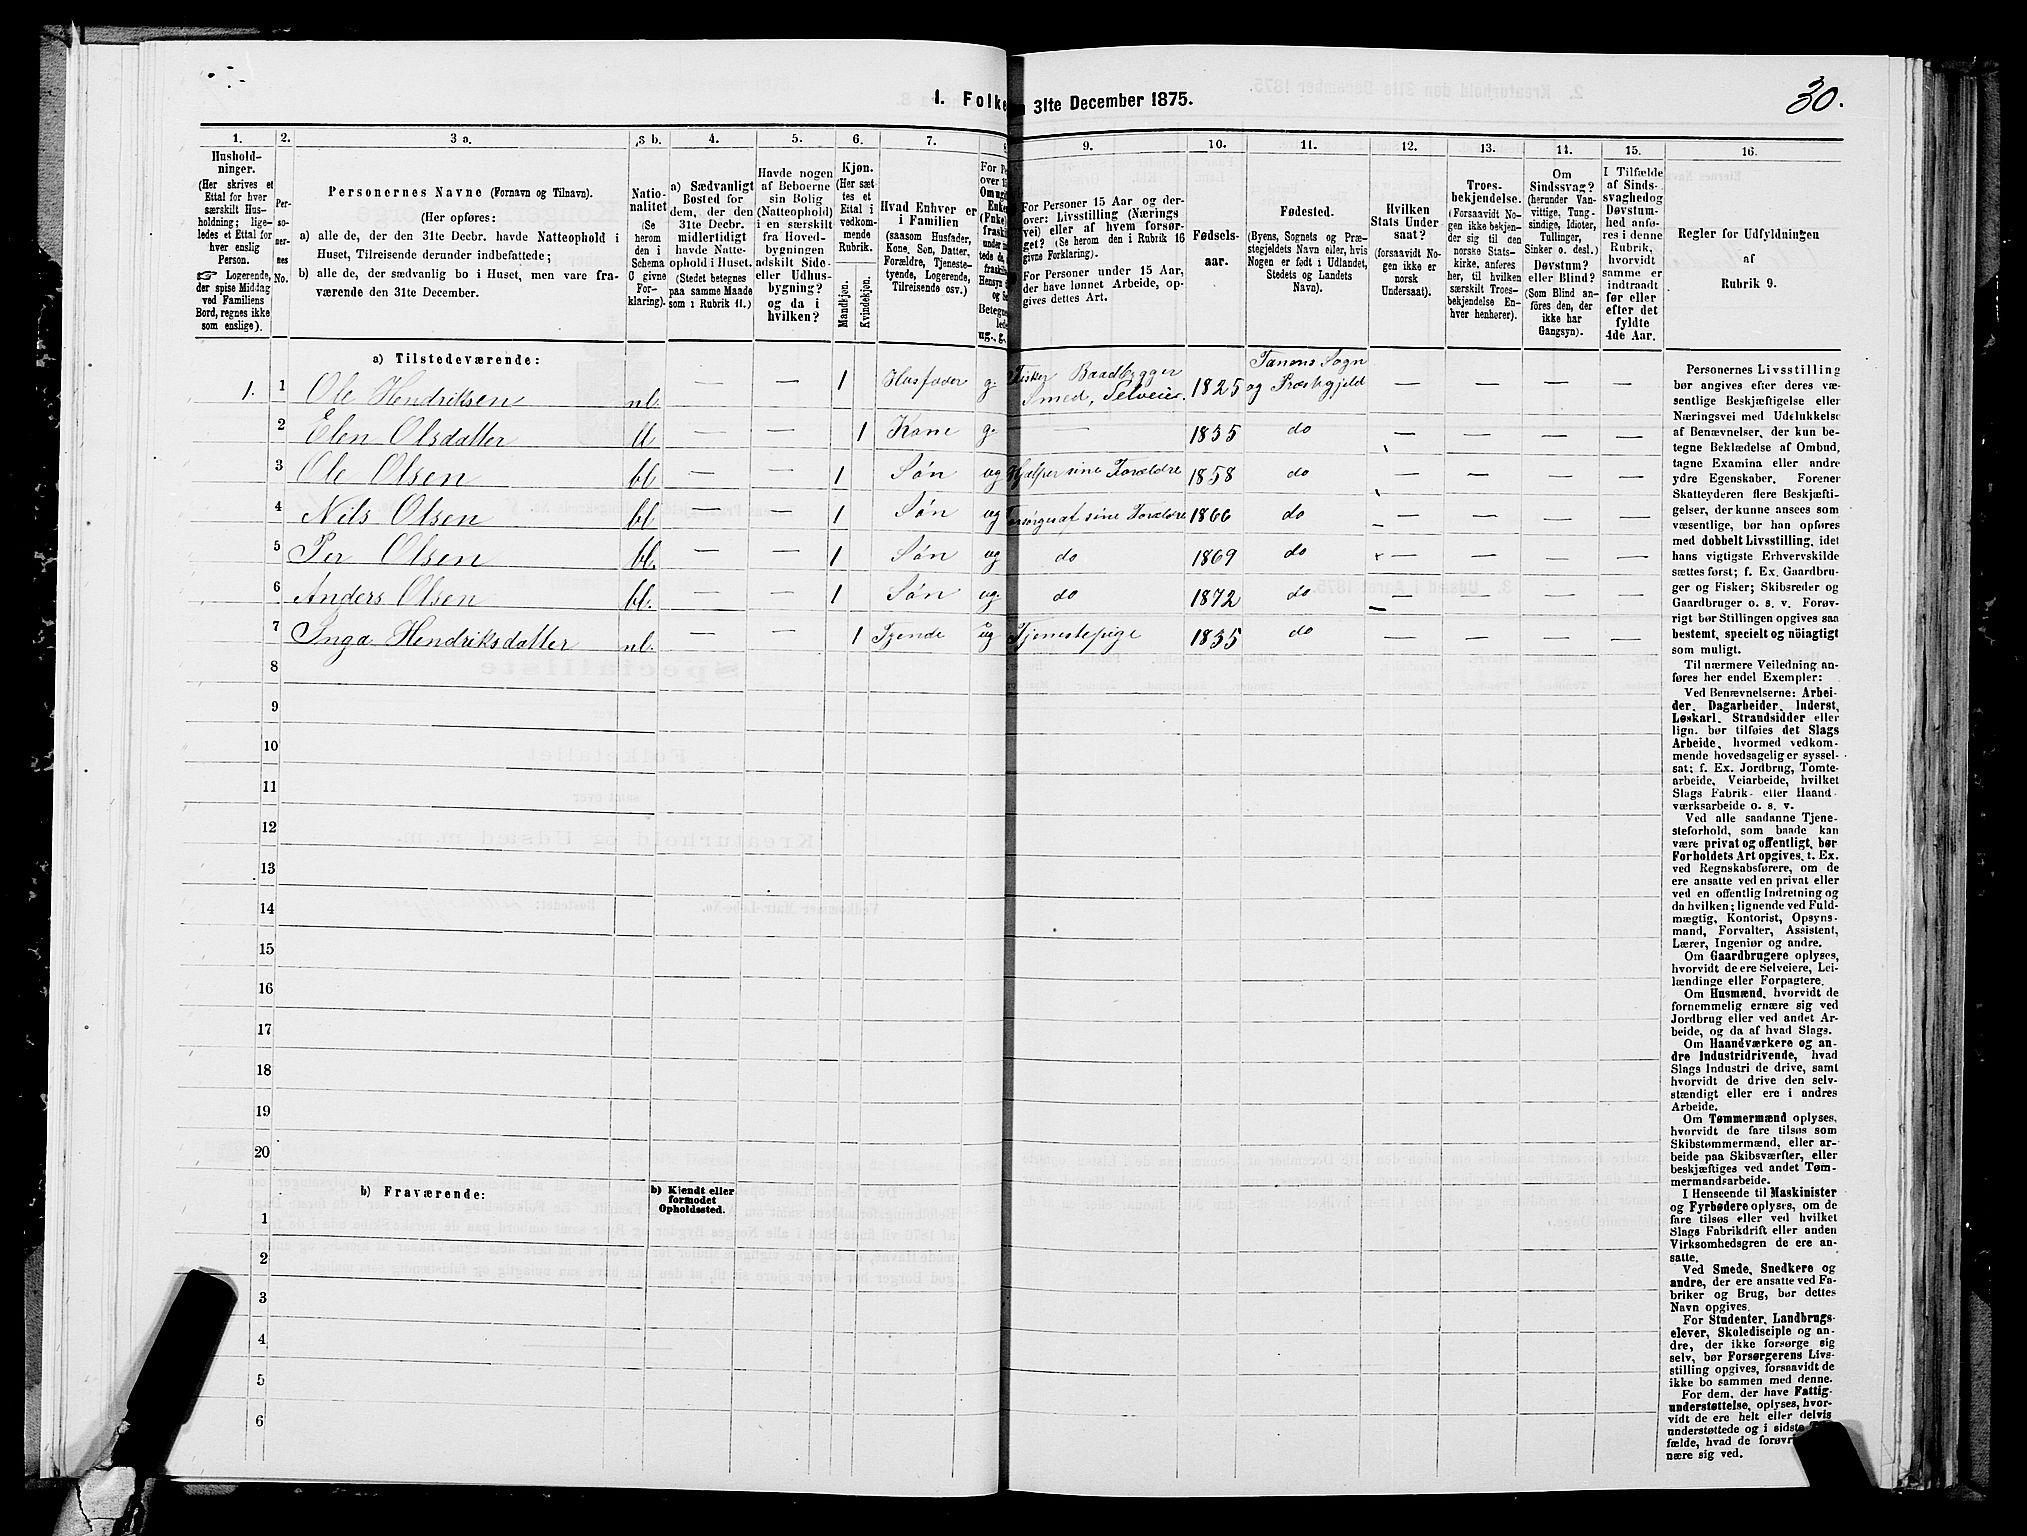 30.
1. Folke 31te December 1875.
1. 2. 3 a. 3 b. 4. 5. 6. 7. 8 9. 10. 11. 12. 13. 14. 15. 16.
Hushold-
ninger.
(Her skrives et
Ettal for hver
særskilt Hus-
holdning; lige-
ledes et Ettal for
hver enslig
Person.
☞ Logerende,
der spise Middag
ved Familiens
Bord, regnes ikke
som enslige).
Per-
so-
ner-
nes
No.
Personernes Navne (Fornavn og Tilnavn).
(Her opføres:
a) alle de, der den 31te Decbr. havde Natteophold i
Huset, Tilreisende derunder indbefattede;
b) alle de, der sædvanlig bo i Huset, men vare fra-
værende den 31te December.
Natio-
nalitet
(Se
herom
den i
Schema
C givne
For-
klaring).
a) Sædvanligt
Bosted for
dem, der den
31te Decbr.
midlertidigt
havde Natte-
ophold i Huset.
(Stedet betegnes
paa samme Maade
som i Rubrik 11.)
Havde nogen
af Beboerne
sin Bolig
(Natteophold)
i en særskilt
fra Hoved-
bygningen
adskilt Side-
eller Udhus-
bygning?
og da i
hvilken?
Kjøn.
(Her sæt-
tes et
Ettal i
vedkom-
mende
Rubrik.
Mandkjøn.
Kvindekjøn.
Hvad Enhver er
i Familien
(saasom Husfader,
Kone, Søn, Datter,
Forældre, Tjeneste-
tyende, Logerende,
Tilreisende osv.)
For P
over 15
Om ugi
Enke
(Enkel
fraskil
under ne
tede de,
fraskil
Hensyn
og Se
Betegne
lede
ug., g.,
For Personer 15 Aar og der-
over: Livsstilling (Nærings
vei) eller af hvem forsør-
get? (Se herom den i Rubrik 16
givne Forklaring).
For Personer under 15 Aar,
der have lønnet Arbeide, op-
gives dettes Art.
Fødsels-
aar.
Fødested.
(Byens, Sognets og Præ-
stegjeldets Navn eller, hvis
Nogen er født i Udlandet,
Stedets og Landets
Navn).
Hvilken
Stats Under
saat?
(forsaavidt No-
gen ikke er
norsk
Undersaat).
Troes-
bekjendelse.
(Forsaavidt No-
gen ikke bekjen-
der sig til den
norske Stats-
kirke, anføres
her, til hvilken
særskilt Troes-
bekjendelse En-
hver henhører).
Om
Sindssvag?
(herunder Van-
vittige, Tung-
sindige, Idioter,
Tullinger,
Sinker o. desl.)
Døvstum?
eller Blind?
(Som Blind an-
føres den, der
ikke har
Gangsyn).
I Tilfælde
af Sinds-
svaghed og
Døvstum-
hed anfø-
res i denne
Rubrik,
hvorvidt
samme er
indtraadt
før eller
efter det
fyldte
4de Aar.
Regler for Udfyldningen
af
Rubrik 9.
a) Tilstedeværende:
1. 1 Ole Hendriksen nl. — — 1 Husfader g. Fisker Baadbygger Smed, Selveier. 1825 Tanens Sogn og Præstegjeld — — — —
2 Elen Olsdatter ll — — 1 Kone g. — 1835 do — — — —
3 Ole Olsen bl — — 1 Søn ug Hjælper sine Forældre 1858 do — — — —
4 Nils Olsen bl — — 1 Søn ug Forsørges af sine Forældre 1866 do — — — —
5 Per Olsen bl. — — 1 Søn ug do 1869 do — — — —
6 Anders Olsen bl. — — 1 Søn ug. do 1872 do — — — —
7 Inga Hendriksdatter nl. — — 1 Tyende ug Tjenestepige 1835 do — — — —
8
9
10
11
12
13
14
15
16
17
18
19
20
b) Fraværende: b) Kjendt eller
formodet
Opholdssted.
1
2
3
4
5
6
Personernes Livsstilling
bør angives efter deres væ-
sentlige Beskjæftigelse eller
Næringsvei med Udelukkelse
af Benævnelser, der kun be-
tegne Beklædelse af Ombud,
tagne Examina eller andre
ydre Egenskaber. Forener
Skatteyderen flere Beskjæfti-
gelser, der kunne ansees som
væsentlige, bør han opføres
med dobbelt Livsstilling, idet
hans vigtigste Erhvervskilde
sættes først; f. Ex. Gaardbru-
ger og Fisker; Skibsreder og
Gaardbruger o. s. v. Forøv-
rigt bør Stillingen opgives saa
bestemt, specielt og nöiagtigt
som muligt.
Til nærmere Veiledning an-
føres her endel Exempler:
Ved Benævnelserne: Arbei-
der, Dagarbeider, Inderst,
Løskarl, Strandsidder eller
lign. bør tilføies det Slags
Arbeide, hvormed vedkom-
mende hovedsagelig er syssel-
sat; f. Ex. Jordbrug, Tomte-
arbeide, Veiarbeide, hvilket
Slags Fabrik- eller Haand
værksarbeide o. s. v.
Ved alle saadanne Tjene-
steforhold, som baade kan
være privat og offentligt, bør
Forholdets Art opgives, t. Ex.
ved Regnskabsførere, om de
ere ansatte ved en privat eller
ved en offentlig Indretning og
da hvilken; lignende ved Fuld-
mægtig, Kontorist, Opsyns-
mand, Forvalter, Assistent,
Lærer, Ingeniør og andre.
Om Gaardbrugere oplyses,
hvorvidt de ere Selveiere, Lei-
lændinge eller Forpagtere.
Om Husmænd, hvorvidt de
fornemmelig ernære sig ved
Jordbrug eller ved andet Ar-
beide, og da af hvad Slags.
Om Haandværkere og an-
dre Industridrivende, hvad
Slags Industri de drive, samt
hvorvidt de drive den selv-
stændigt eller ere i andres
Arbeide.
Om Tømmermænd oplyses,
hvorvidt de fare tilsøs som
Skibstømmermænd, eller ar-
beide paa Skibsværfter, eller
beskjæftiges ved andet Tøm-
mermandsarbeide.
I Henseende til Maskinister
og Fyrbødere oplyses, om de
fare tilsøs eller ved hvilket
Slags Fabrikdrift eller anden
Virksomhedsgren de ere an-
satte.
Ved Smede, Snedkere og
andre, der ere ansatte ved Fa-
briker og Brug, bør dettes
Navn opgives.
For Studenter, Landbrugs-
elever, Skoledisciple og an-
dre, der ikke forsørge sig
selv, bør Forsørgerens Livs-
stilling opgives, forsaavidt de
ikke bo sammen med denne.
For dem, der have Fattig-
understøttelse, oplyses, hvor-
vidt de ere helt eller delvis
understøttede og i sidste
fælde, hvad de forøvri
nære sig ved.